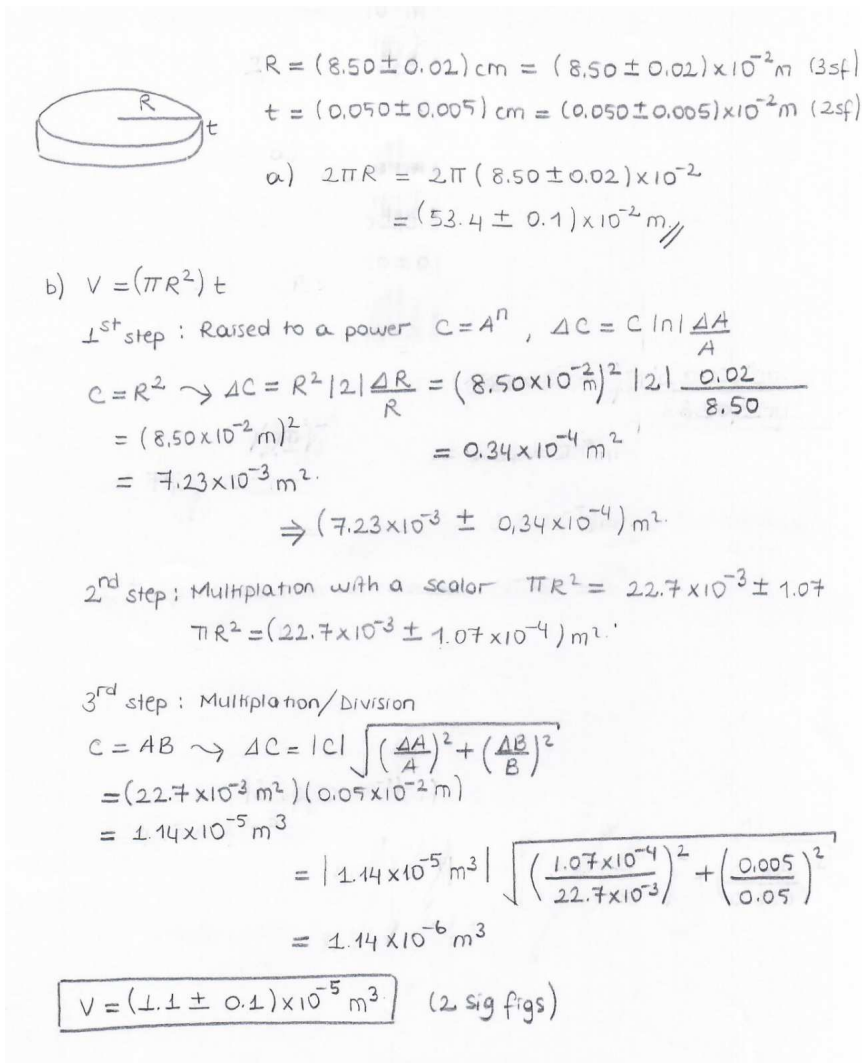 R = (8.50 ± 0.02) cm = (8.50 ± 0.02) x 10⁻² m (3sf)
R
t
t = (0.050 ± 0.005) cm = (0.050 ± 0.005) x 10⁻² m (2sf)
a) 2πR = 2π (8.50 ± 0.02) x 10⁻²
= (53.4 ± 0.1) x 10⁻² m //
b) V = (πR²) t
1st step : Raised to a power C = Aⁿ , ΔC = C |n| ΔA/A
C = R² ⤳ ΔC = R² |2| ΔR/R = (8.50 x 10⁻² m)² |2| 0.02/8.50
= (8,50 x 10⁻² m)² = 0.34 x 10⁻⁴ m²
= 7.23 x 10⁻³ m².
⇒ (7.23 x 10⁻³ ± 0,34 x 10⁻⁴) m².
2nd step : Multiplation with a scalar πR² = 22.7 x 10⁻³ ± 1.07
πR² = (22.7 x 10⁻³ ± 1.07 x 10⁻⁴) m².
3rd step : Multiplation/Division
C = AB ⤳ ΔC = |C| √((ΔA/A)² + (ΔB/B)²)
= (22.7 x 10⁻³ m²) (0.05 x 10⁻² m)
= 1.14 x 10⁻⁵ m³
= |1.14 x 10⁻⁵ m³| √((1.07 x 10⁻⁴/22.7 x 10⁻³)² + (0.005/0.05)²)
= 1.14 x 10⁻⁶ m³
V = (1.1 ± 0.1) x 10⁻⁵ m³ (2 sig figs)